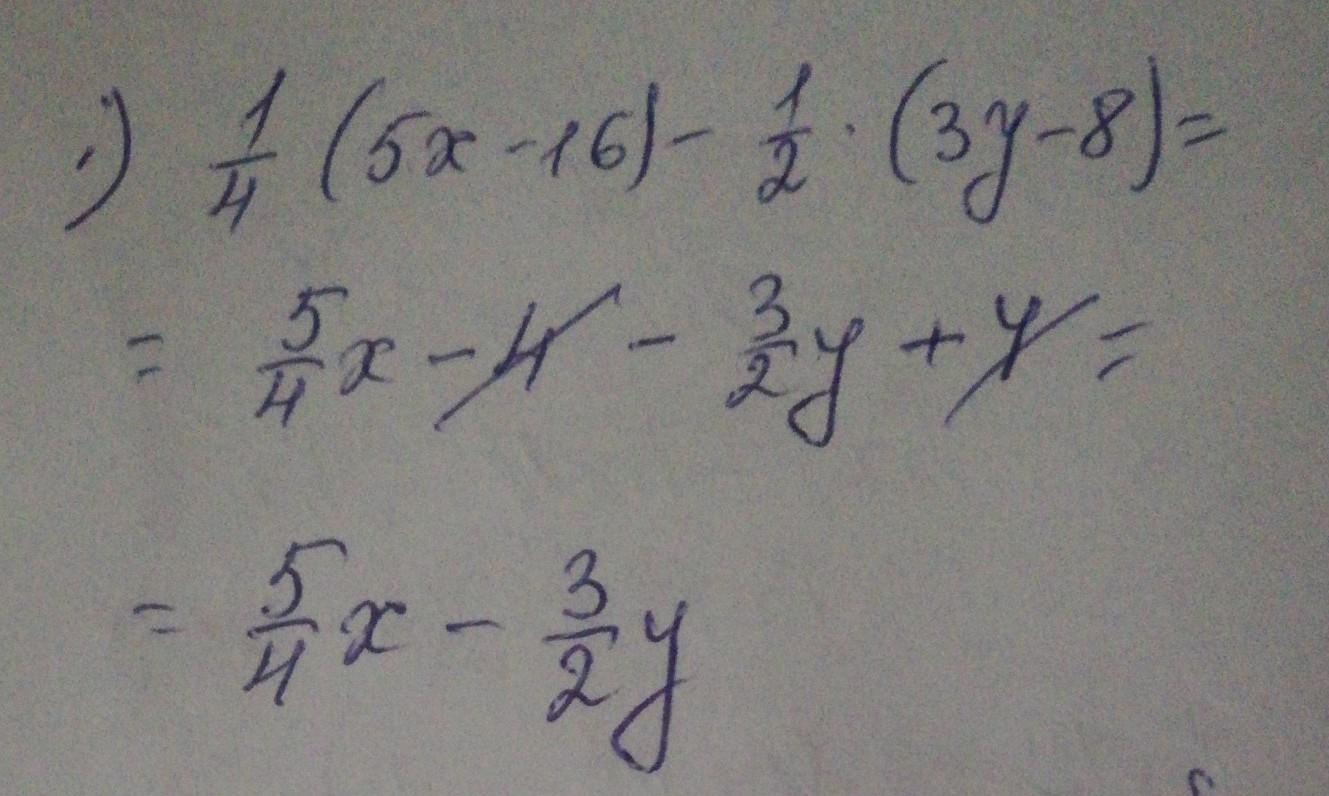 ·) 1/4 (5x - 16) - 1/2 · (3y - 8) =
= 5/4 x - 4 - 3/2 y + 4 =
= 5/4 x - 3/2 y